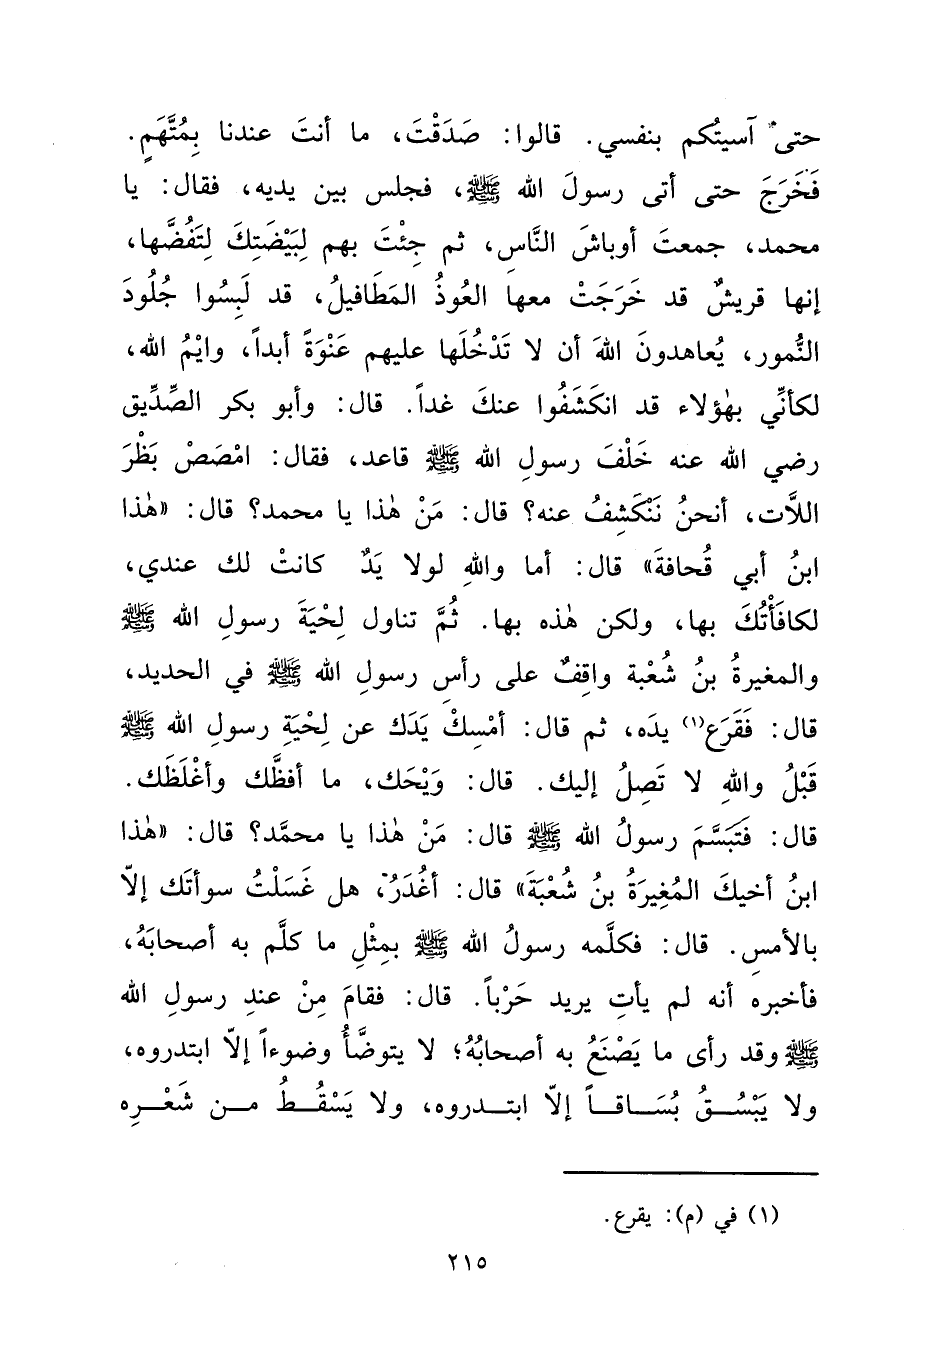 حتى آسيتُكم بنفسي. قالوا: صَدَقْتَ، ما أنتَ عندنا بِمُتَّهَمٍ.
فَخَرَجَ حتى أتى رسولَ الله ﷺ، فجلس بين يديه، فقال: يا
محمد، جمعتَ أوباشَ النَّاسِ، ثم جِئْتَ بهم لِبَيْضَتِكَ لِتَفُضَّها،
إنها قريشٌ قد خَرَجَتْ معها العُوذُ المَطَافيلُ، قد لَبِسُوا جُلُودَ
النُّمور، يُعاهدونَ اللهَ أن لا تَدْخُلَها عليهم عَنْوَةً أبداً، وايْمُ الله،
لكأنِّي بهٰؤلاء قد انكَشَفُوا عنكَ غداً. قال: وأبو بكر الصِّدِّيق
رضي الله عنه خَلْفَ رسولِ الله ﷺ قاعد، فقال: امْصَصْ بَظْرَ
اللاَّت، أنحنُ نَنْكَشِفُ عنه؟ قال: مَنْ هٰذا يا محمد؟ قال: «هٰذا
ابنُ أبي قُحافةَ» قال: أما واللهِ لولا يَدٌ كانتْ لك عندي،
لكافَأْتُكَ بها، ولكن هٰذه بها. ثُمَّ تناول لِحْيَةَ رسولِ الله ﷺ
والمغيرةُ بنُ شُعْبة واقِفٌ على رأسِ رسولِ الله ﷺ في الحديد،
قال: فَقَرَع(١) يدَه، ثم قال: أمْسِكْ يَدَك عن لِحْيَةِ رسولِ الله ﷺ
قَبْلُ واللهِ لا تَصِلُ إليك. قال: وَيْحَك، ما أفظَّك وأغْلَظَك.
قال: فَتَبَسَّمَ رسولُ الله ﷺ قال: مَنْ هٰذا يا محمَّد؟ قال: «هٰذا
ابنُ أخيكَ المُغِيرَةُ بنُ شُعْبَةَ» قال: أغُدَرُ، هل غَسَلْتُ سوأتَك إلاّ
بالأمسِ. قال: فكلَّمه رسولُ الله ﷺ بمِثْلِ ما كلَّم به أصحابَهُ،
فأخبره أنه لم يأتِ يريد حَرْباً. قال: فقامَ مِنْ عندِ رسولِ الله
ﷺ وقد رأى ما يَصْنَعُ به أصحابُهُ؛ لا يتوضَّأُ وضوءاً إلاّ ابتدروه،
ولا يَبْسُقُ بُسَاقاً إلاّ ابتدروه، ولا يَسْقُطُ من شَعْرِه
(١) في (م): يقرع.
٢١٥